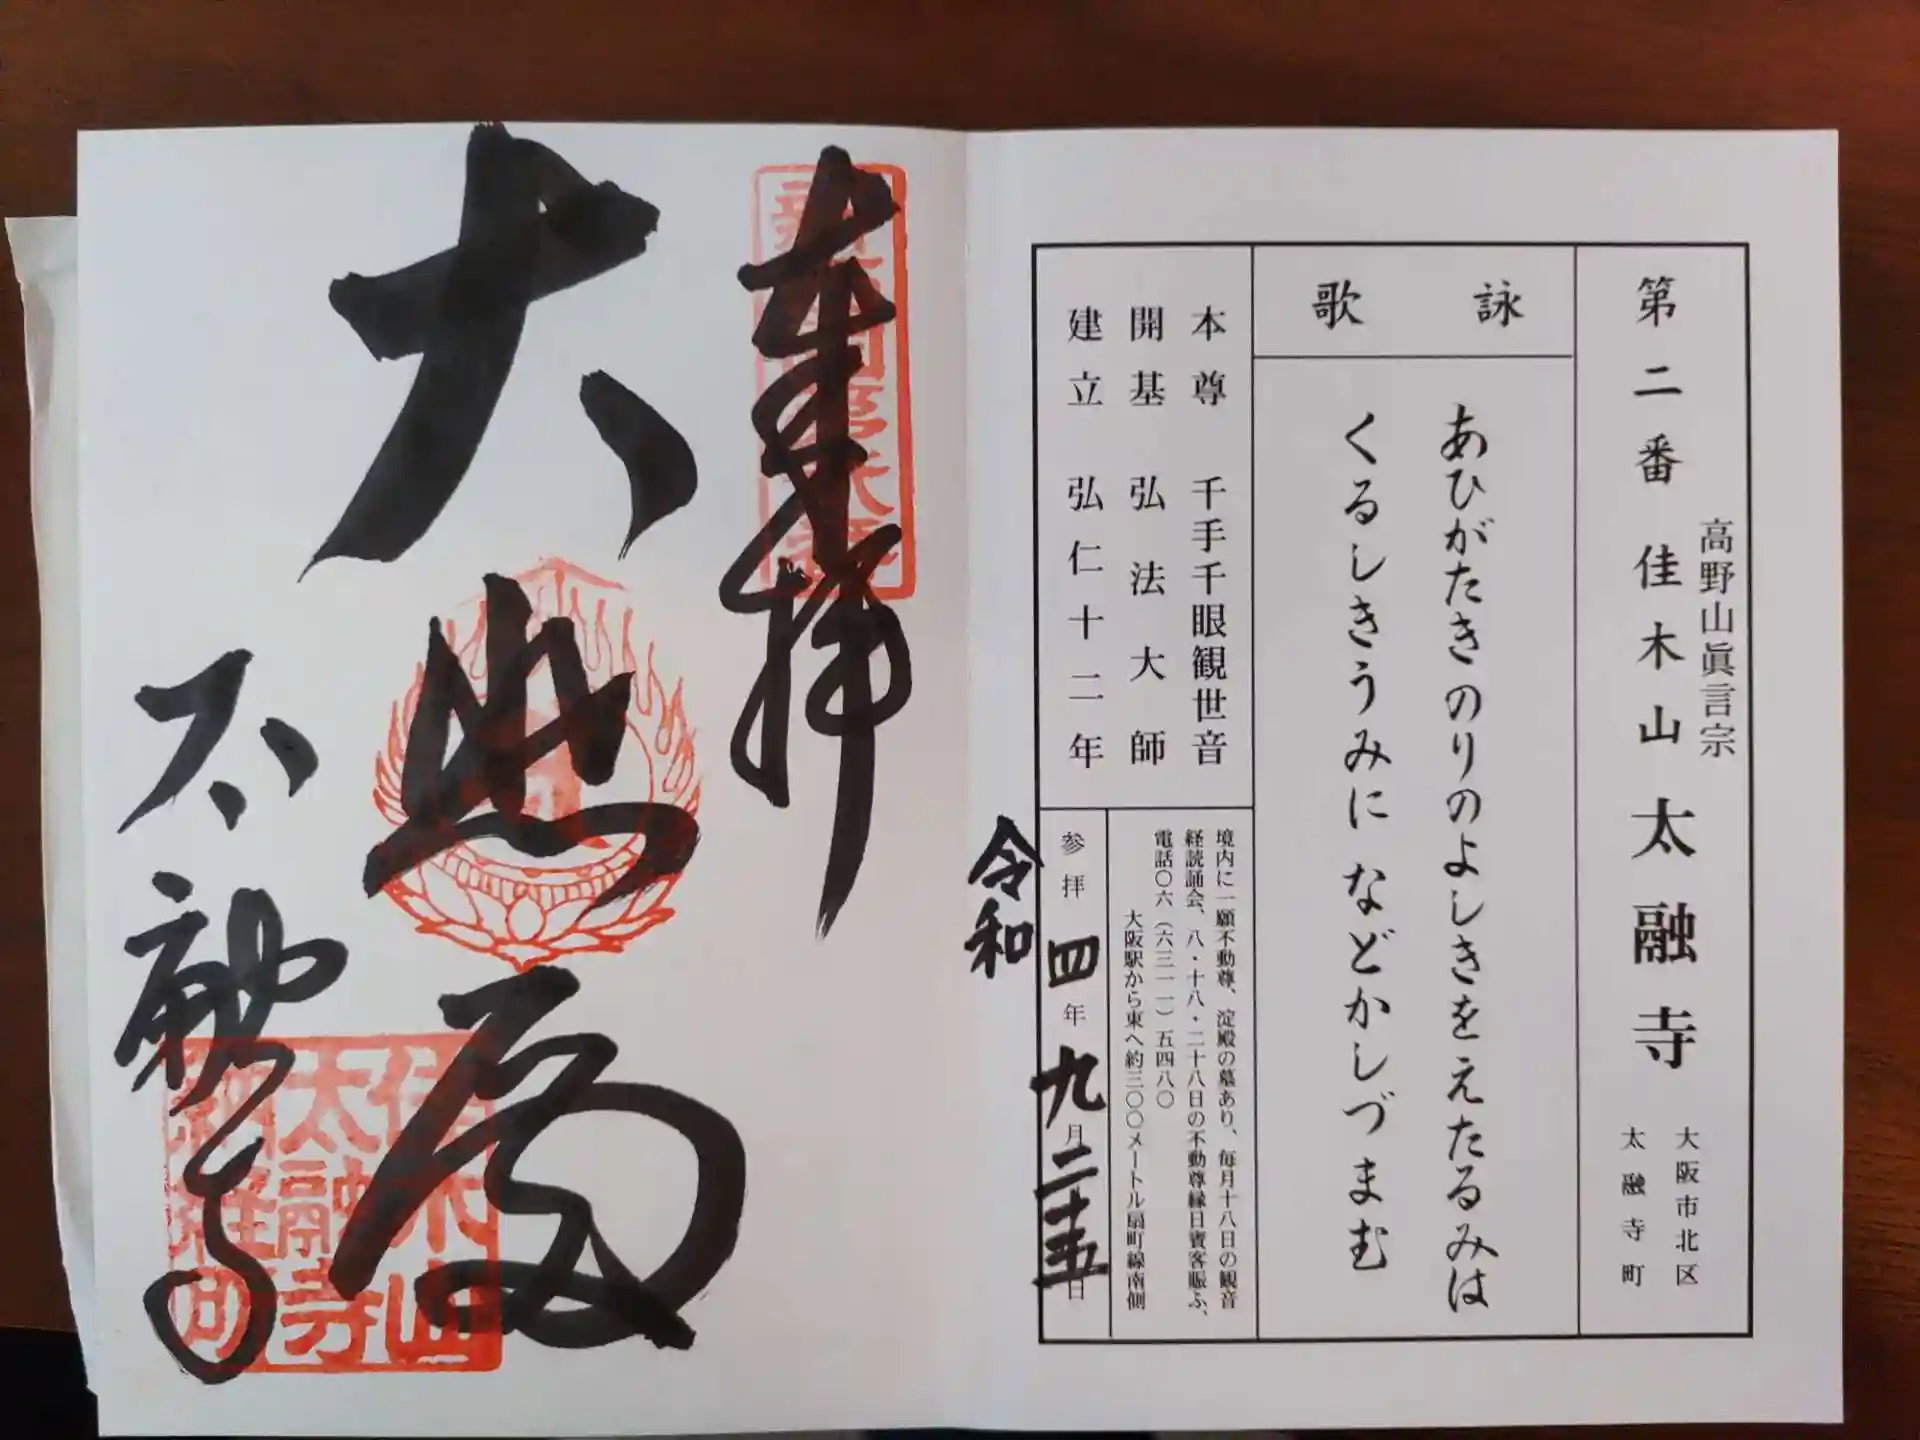 第二番 佳木山 太融寺
高野山眞言宗
大阪市北区
太融寺町
詠歌
あひがたきのりのよしきをえたるみは
くるしきうみに などかしづまむ
本尊 千手千眼観世音
開基 弘法大師
建立 弘仁十二年
境内に一願不動尊、淀殿の墓あり、毎月十八日の観音
経読誦会、八・十八・二十八日の不動尊縁日賓客賑ふ、
電話〇六(六三一一)五四八〇
大阪駅から東へ約三〇〇メートル扇町線南側
令和
参拝 四年九月二十五日
奉拝
大悲殿
太融寺
佳木山
太融寺
納経印